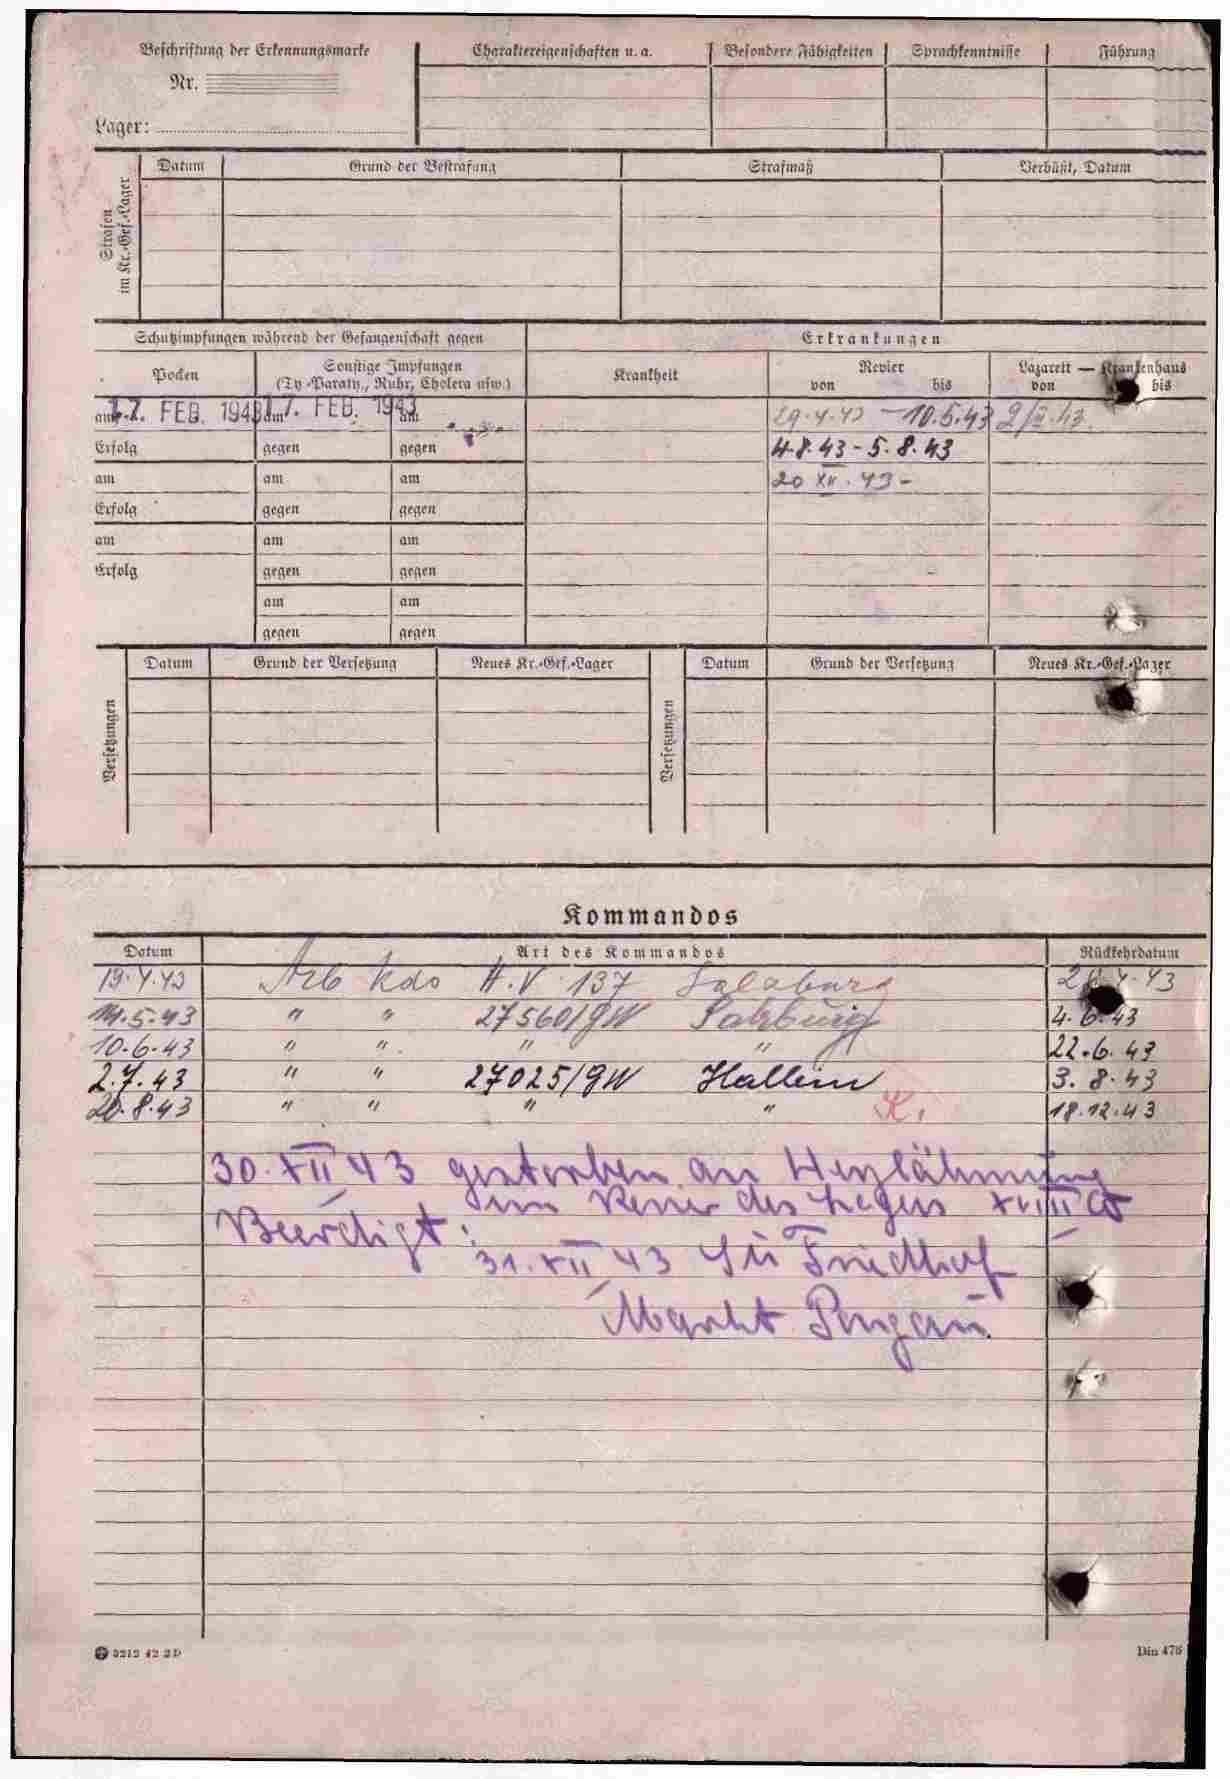 Beschriftung der Erkennungsmarke
Nr.
Lager:
Charaktereigenschaften u. a. Besondere Fähigkeiten Sprachkenntnisse Führung
Strafen im Kr.-Gef.-Lager
Datum Grund der Bestrafung Strafmaß Verbüßt, Datum
Schutzimpfungen während der Gefangenschaft gegen
Erkrankungen
Pocken
Sonstige Impfungen
(Ty.-Paraty., Ruhr, Cholera usw.)
Krankheit
Revier
von bis
Lazarett — Krankenhaus
von bis
am 17. FEB. 1943 am 17. FEB. 1943 am
29.4.43 - 10.5.43
Erfolg gegen gegen
4.8.43 - 5.8.43
am am am
20 XII. 43 -
Erfolg gegen gegen
am am am
Erfolg gegen gegen
am am
gegen gegen
Versetzungen
Datum Grund der Versetzung Neues Kr.-Gef.-Lager
Versetzungen
Datum Grund der Versetzung Neues Kr.-Gef.-Lager
Kommandos
Datum Art des Kommandos Rückkehrdatum
19.4.43 Arb Kdo H.V 137 Salzburg 4.43
14.5.43 " " 27560/GW Salzburg 4.6.43
10.6.43 " " " " 22.6.43
2.7.43 " " 27025/GW Hallein 3.8.43
20.8.43 " " " " K. 18.12.43
30.XII 43 gestorben an Herzlähmung
im Revier des Lagers XVIII
Beerdigt:
31.XII 43 Friedhof
Markt Pongau
5212 42 2D
Din 476